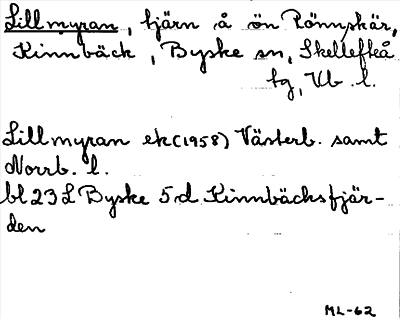 Lillmyran, tjärn å ön Rönnskär,
Kinnbäck, Byske sn, Skellefteå
tg, Vb. l.
Lillmyran ek (1958) Västerb. samt
Norrb. l.
bl 23 L Byske 5 d Kinnbäcksfjär-
den
ML-62